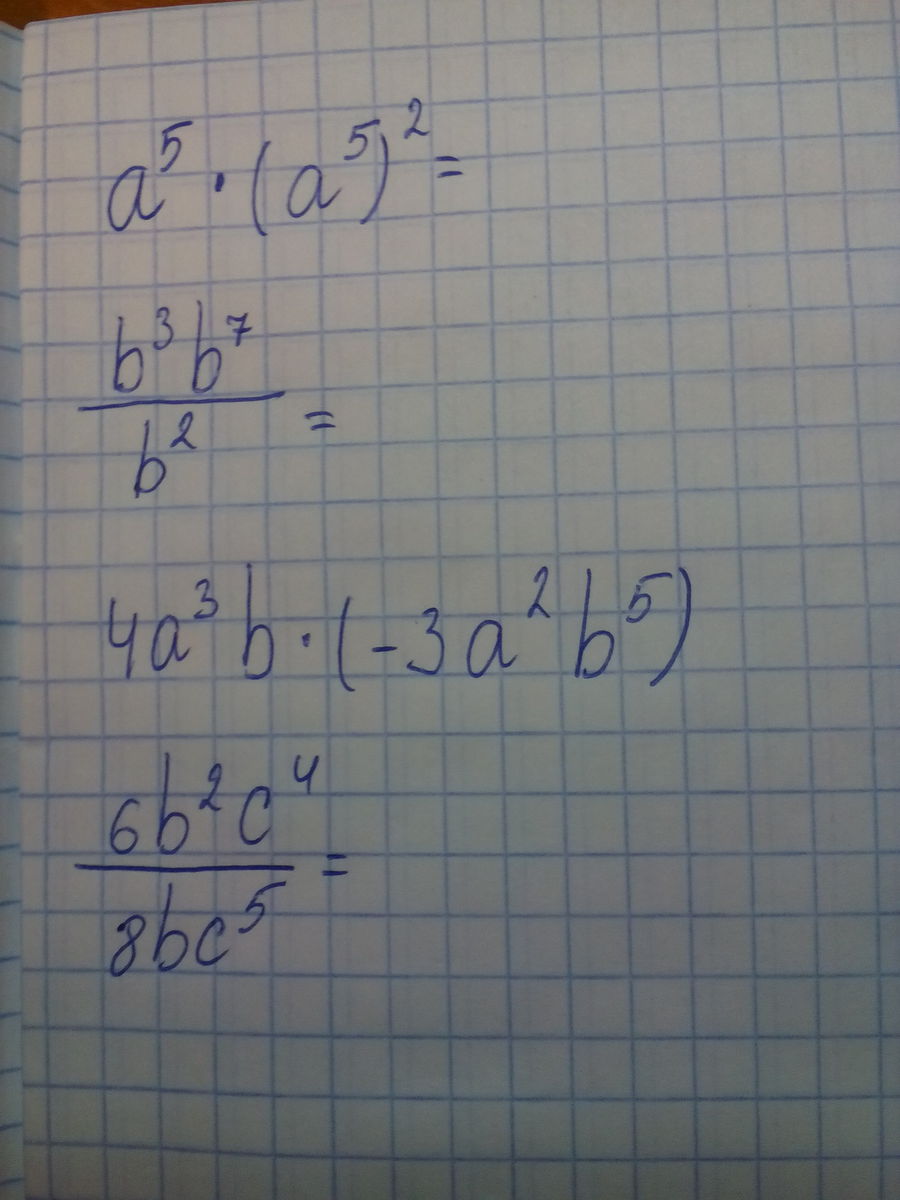 a⁵ · (a⁵)² =
b³b⁷ / b² =
4a³b · (-3a²b⁵)
6b²c⁴ / 8bc⁵ =